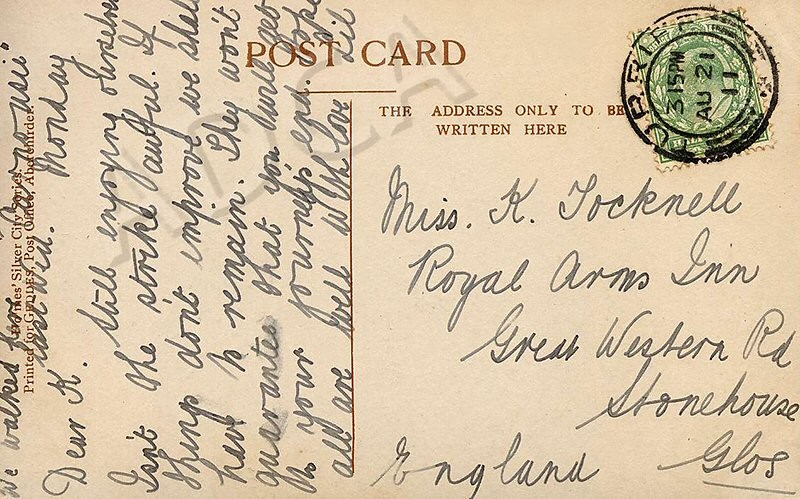 POST CARD
THE ADDRESS ONLY TO BE
WRITTEN HERE
3 15PM
AU 21
11
Miss. K. Tocknell
Royal Arms Inn
Great Western Rd
Stonehouse
Glos
England
We walked here
last Wed.
Monday
Dear K. Still enjoying
Isn't the strike awful. If
things don't improve we shall
have to remain. They won't
guarantee that you will get
to your journey's end. Hope
all are well with love Lil
Silver City Series.
Printed for GEDDES, Post Office, Aberchirder.